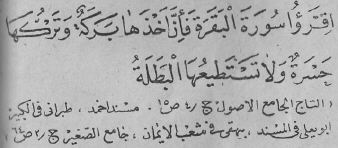 اِقْرَؤُا سُورَةَ الْبَقَرَةِ فَاِنَّ اَخْذَهَا بَرَكَةٌ وَتَرْكَهَا
حَسْرَةٌ وَلَا تَسْتَطِيعُهَا الْبَطَلَةُ
(التاج الجامع الاصول ج/٤ ص١٥. مسند احمد، طبرانى فى الكبير
ابو يعلى فى المسند، بيهقى فى شعب الايمان، جامع الصغير ج/٢ ص٦٤)